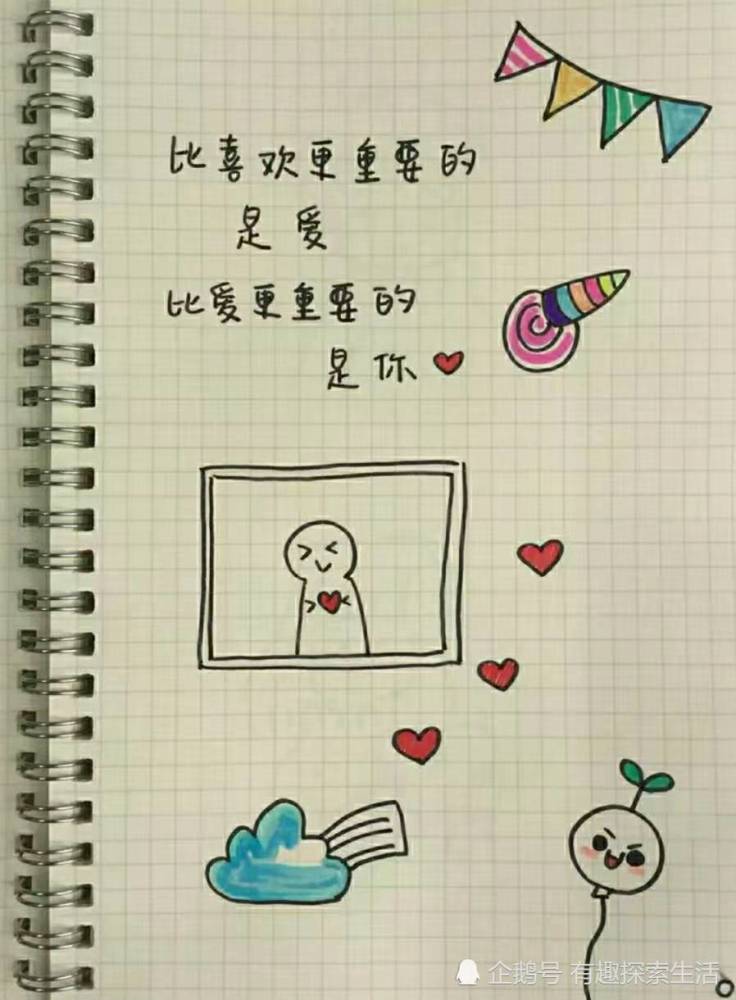 比喜欢更重要的
是爱
比爱更重要的
是你
企鹅号 有趣探索生活